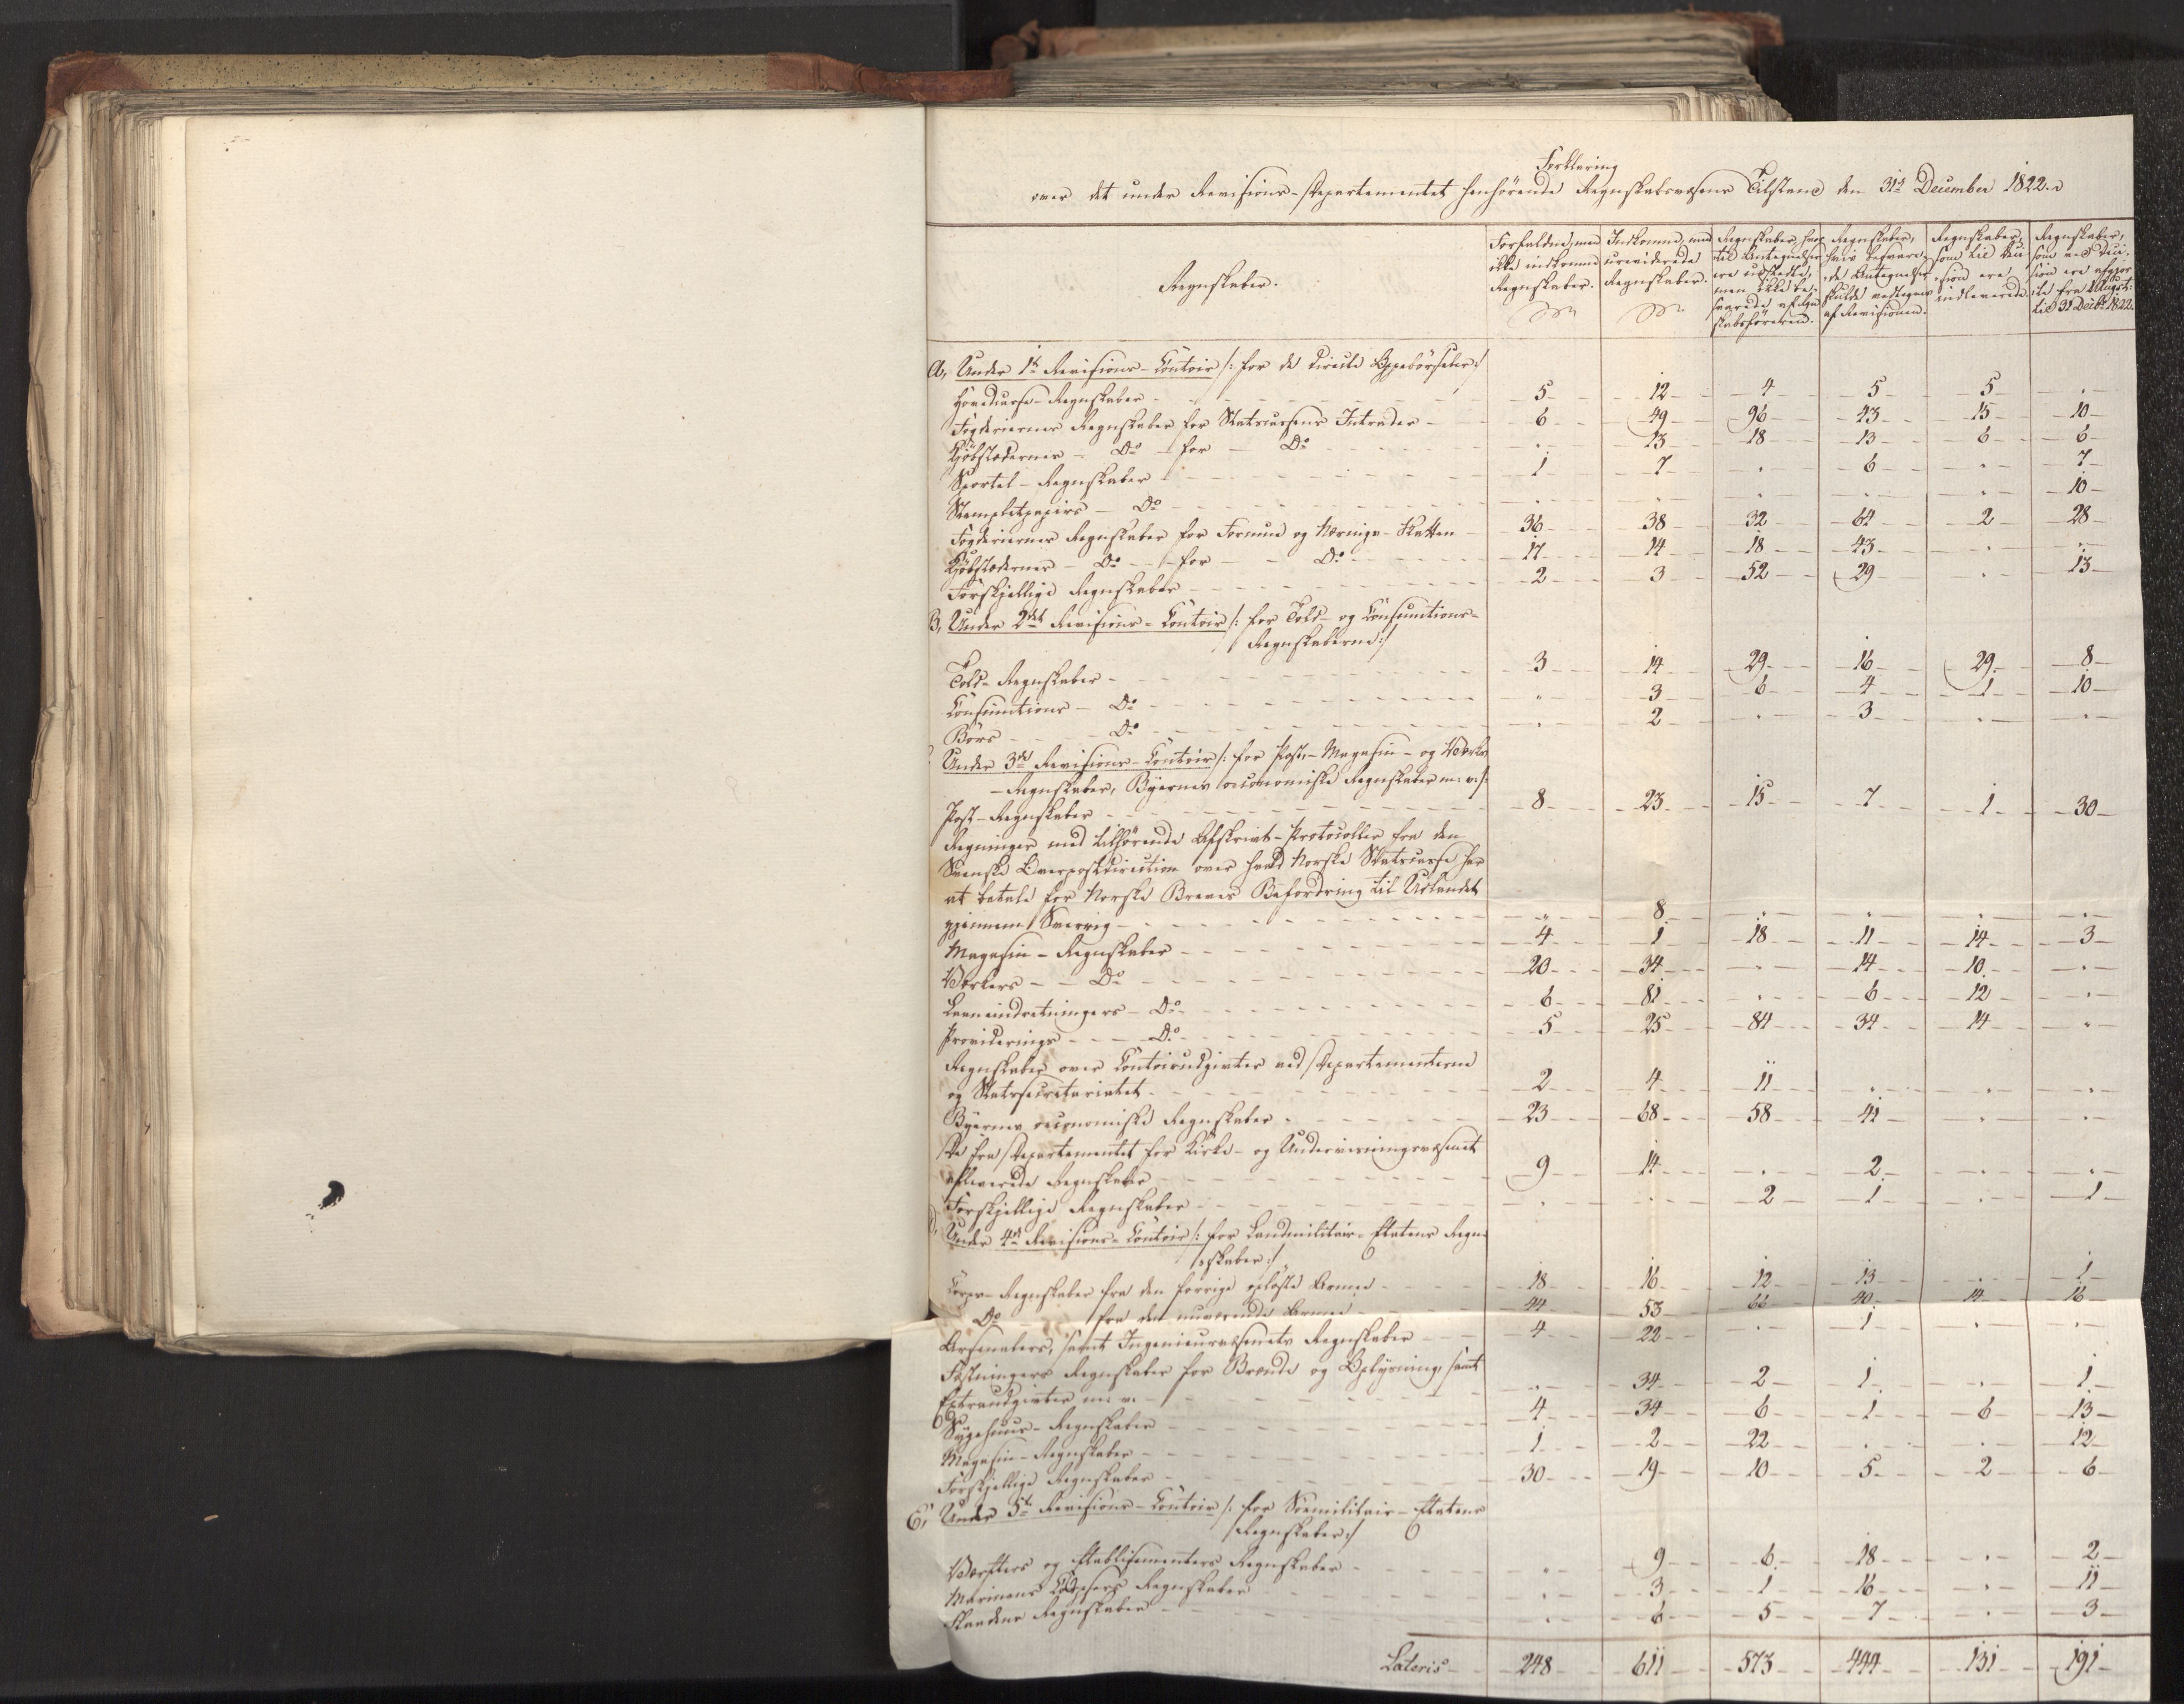 Forklaring
over det under Revisions-Departementet henhörende Regnskabsvæsens Tilstand den 31te December 1822.
Regnskaber.
Forfaldne, men
ikke indkomne
Regnskaber.
Indkomne, men
ureviderede
Regnskaber.
Regnskaber, hvor-
til Antegnelser
ere udstedte,
men ikke be-
svarede af Regn-
skabsföreren.
Regnskaber,
hvis besvare-
de Antegnelser
skulde vedtegnes
af Revisionen.
Regnskaber,
som til Deci-
sion ere
indleverede.
Regnskaber,
som ved Deci-
sion ere afgjor-
te fra 1 August
til 31 Decbr 1822.
A, Under 1te Revisions-Contoir /: for de directe Oppebörseler :/
Hovedcasse-Regnskaber - 5 - 12 - 4 - 5 - 5 - "
Fogderiernes Regnskaber for Statscassens Intrader - 6 - 49 - 96 - 43 - 15 - 10
Kjöbstædernes - Do - for - Do - " - 13 - 18 - 13 - 6 - 6
Sportel-Regnskaber - 1 - 7 - " - 6 - " - 7
Stempletpapirs - Do - " - " - " - " - " - 10
Fogderiernes Regnskaber for Formue og Nærings-Skatten - 36 - 38 - 32 - 64 - 2 - 28
Kjöbstædernes - Do - for - Do - 17 - 14 - 18 - 43 - " - "
Forskjellige Regnskaber - 2 - 3 - 52 - 29 - " - 13
B, Under 2det Revisions-Contoir /: for Told- og Consumtions-
Regnskaberne :/
Told-Regnskaber - 3 - 14 - 29 - 16 - 29 - 8
Consumtions - Do - " - 3 - 6 - 4 - 1 - 10
Börs - Do - " - 2 - " - 3 - " - "
Under 3die Revisions-Contoir /: for Post-, Magasin- og Værks
-Regnskaber, Byernes oeconomiske Regnskaber m: v: /:
Post-Regnskaber - 8 - 23 - 15 - 7 - 1 - 30
Regninger med tilhörende Afskrivt-Protocoller fra den
Svenske Overpostdirection over hvad Norske Statscasse har
at betale for Norske Breves Befordring til Udlandet
gjennem Sverrig - " - 8 - " - " - " - "
Magasin-Regnskaber - 4 - 1 - 18 - 11 - 14 - 3
Værkers - Do - 20 - 34 - " - 14 - 10 - "
Laaneindretningers - Do - 6 - 81 - " - 6 - 12 - "
Provideringe - Do - 5 - 25 - 84 - 34 - 14 - "
Regnskaber over Contoirudgivter ved Departementerne
og Statssecretariatet - 2 - 4 - 11 - " - " - "
Byernes oeconomiske Regnskaber - 23 - 68 - 58 - 41 - " - "
De fra Departementet for Kirke- og Underviisningsvæsenet
afleverede Regnskaber - 9 - 14 - " - 2 - " - "
Forskjellige Regnskaber - " - " - 2 - 1 - " - 1
D, Under 4de Revisions-Contoir /: for Landmilitair-Etatens Regn-
skaber :/
Corps-Regnskaber fra den forrige oplöste Armee - 18 - 16 - 12 - 13 - " - 1
Do - fra den nuværende Armee - 44 - 53 - 66 - 40 - 14 - 16
Arsenalers, samt Ingenieurvæsenets Regnskaber - 4 - 22 - " - 1 - " - "
Fæstningers Regnskaber for Brænde og Oplysning, samt
Extraudgivter m: v: - " - 34 - 2 - 1 - " - 1
Sygehuus-Regnskaber - 4 - 34 - 6 - 1 - 6 - 13
Magasin-Regnskaber - 1 - 2 - 22 - " - " - 12
Forskjellige Regnskaber - 30 - 19 - 10 - 5 - 2 - 6
E, Under 5te Revisions-Contoir /: for Söemilitair-Etatens
Regnskaber :/
Værfters og Etablisementers Regnskaber - " - 9 - 6 - 18 - " - 2
Marinens Regnskaber - " - 3 - 1 - 16 - " - 11
Regnskaber - " - 6 - 5 - 7 - " - 3
Lateris - 248 - 611 - 573 - 444 - 131 - 191